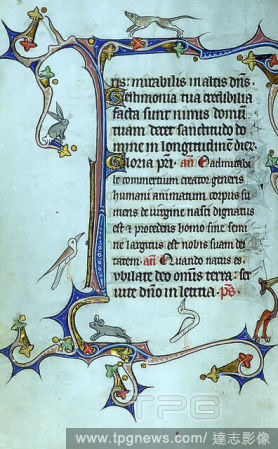 ris: mirabilis in altis dns.
Testimonia tua credibilia
facta sunt nimis domu
tuam decet sanctitudo do
mine in longitudine dier
Gloria pri. an O admirabi
le commertium creator generis
humani animatum corpus su
mens de virgine nasci dignatus
est & procedens homo sine semi
ne largitus est nobis suam dei
tatem. an Quando natus es
ubilate deo omnis terra: ser
uite dno in leticia. ps
TPG
www.tpgnews.com/達志影像